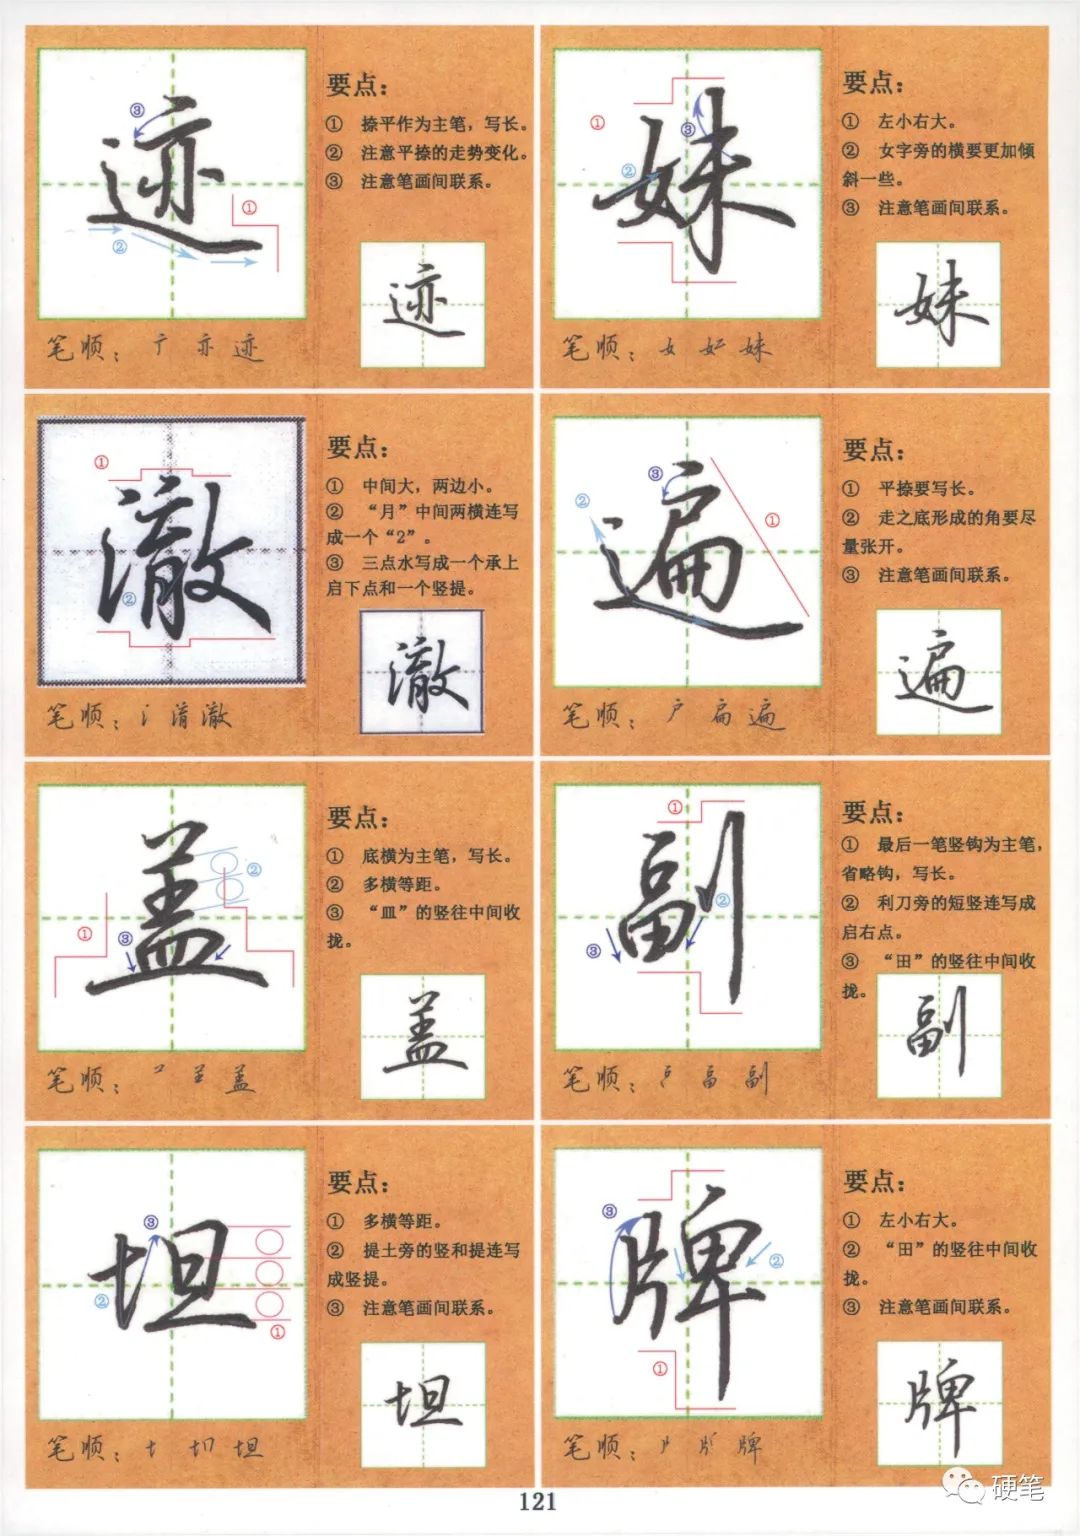 迹
要点：
① 捺平作为主笔，写长。
② 注意平捺的走势变化。
③ 注意笔画间联系。
迹
笔顺： 亦 迹
妹
要点：
① 左小右大。
② 女字旁的横要更加倾
斜一些。
③ 注意笔画间联系。
妹
笔顺：女 妹
澈
要点：
① 中间大，两边小。
② “月”中间两横连写
成一个“2”。
③ 三点水写成一个承上
启下点和一个竖提。
澈
笔顺：氵 淯 澈
遍
要点：
① 平捺要写长。
② 走之底形成的角要尽
量张开。
③ 注意笔画间联系。
遍
笔顺：户 扁 遍
盖
要点：
① 底横为主笔，写长。
② 多横等距。
③ “皿”的竖往中间收
拢。
盖
笔顺： 盖
副
要点：
① 最后一笔竖钩为主笔，
省略钩，写长。
② 利刀旁的短竖连写成
启右点。
③ “田”的竖往中间收
拢。
副
笔顺： 畐 副
坦
要点：
① 多横等距。
② 提土旁的竖和提连写
成竖提。
③ 注意笔画间联系。
坦
笔顺： 坦
牌
要点：
① 左小右大。
② “田”的竖往中间收
拢。
③ 注意笔画间联系。
牌
笔顺： 牌
121
硬笔